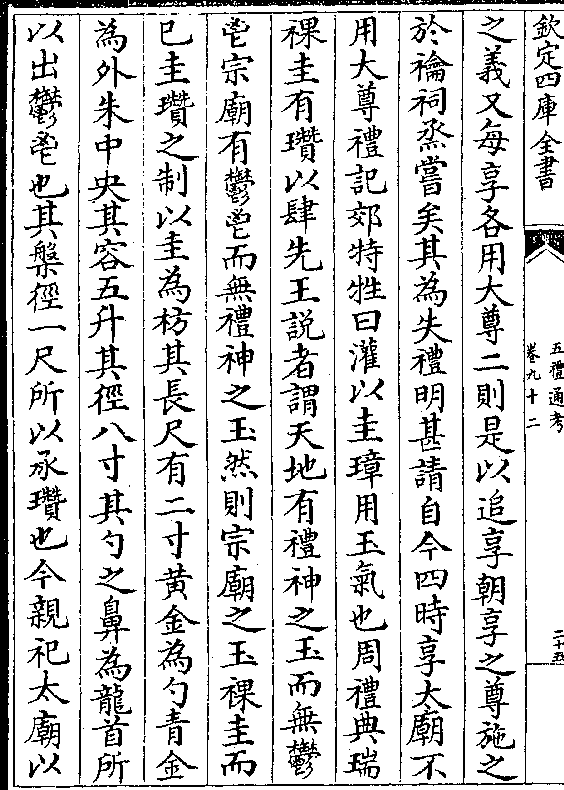 欽定四庫全書
五禮通考
卷九十二
二十五
之義又每享各用大尊二則是以追享朝享之尊施之
於禴祠烝嘗矣其為失禮明甚請自今四時享大廟不
用大尊禮記郊特牲曰灌以圭璋用玉氣也周禮典瑞
祼圭有瓚以肆先王説者謂天地有禮神之玉而無鬱
鬯宗廟有鬱鬯而無禮神之玉然則宗廟之玉祼圭而
已圭瓚之制以圭為枋其長尺有二寸黄金為勺青金
為外朱中央其容五升其徑八寸其勺之鼻為龍首所
以出鬱鬯也其槃徑一尺所以承瓚也今親祀太廟以